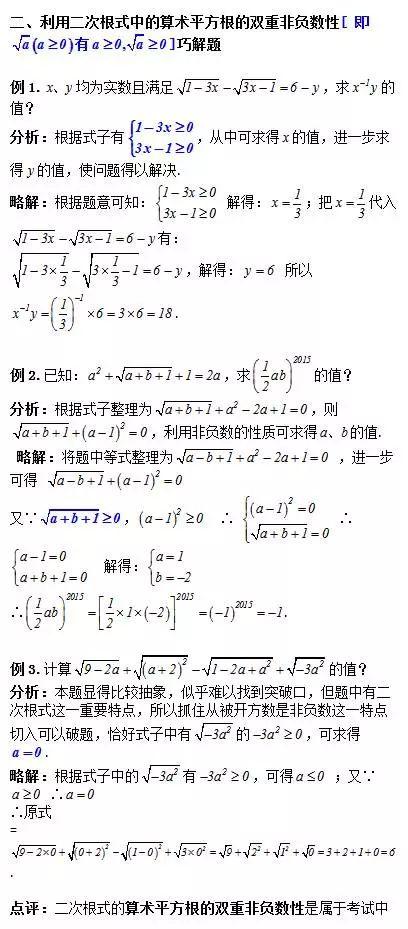 二、利用二次根式中的算术平方根的双重非负数性[ 即
√a(a≥0)有a≥0,√a≥0]巧解题
例1. x、y均为实数且满足√(1-3x)-√(3x-1)=6-y,求x⁻¹y的
值?
分析:根据式子有{1-3x≥0 3x-1≥0,从中可求得x的值,进一步求
得y的值,使问题得以解决.
略解:根据题意可知:{1-3x≥0 3x-1≥0 解得:x=1/3;把x=1/3代入
√(1-3x)-√(3x-1)=6-y有:
√(1-3×1/3)-√(3×1/3-1)=6-y,解得:y=6 所以
x⁻¹y=(1/3)⁻¹×6=3×6=18.
例2.已知:a²+√(a+b+1)+1=2a,求(1/2ab)²⁰¹⁵的值?
分析:根据式子整理为√(a+b+1)+a²-2a+1=0,则
√(a+b+1)+(a-1)²=0,利用非负数的性质可求得a、b的值.
略解:将题中等式整理为√(a-b+1)+a²-2a+1=0 ,进一步
可得 √(a-b+1)+(a-1)²=0
又∵√(a+b+1)≥0,(a-1)²≥0 ∴{(a-1)²=0 √(a+b+1)=0 ∴
{a-1=0 a+b+1=0 解得:{a=1 b=-2
∴(1/2ab)²⁰¹⁵=[1/2×1×(-2)]²⁰¹⁵=(-1)²⁰¹⁵=-1.
例3.计算√(9-2a)+√((a+2)²)-√(1-2a+a²)+√(-3a²)的值?
分析:本题显得比较抽象,似乎难以找到突破口,但题中有二
次根式这一重要特点,所以抓住从被开方数是非负数这一特点
切入可以破题,恰好式子中有√(-3a²)的-3a²≥0,可求得
a=0.
略解:根据式子中的√(-3a²)有-3a²≥0,可得a≤0 ;又∵
a≥0 ∴a=0
∴原式
=
√(9-2×0)+√((0+2)²)-√((1-0)²)+√(3×0²)=√9+√(2²)+√(1²)+√0=3+2+1+0=6
.
点评:二次根式的算术平方根的双重非负数性是属于考试中